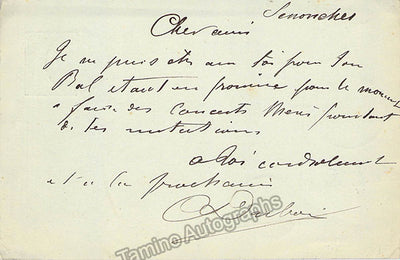 Senonches
Cher ami
Je ne puis être au soi pour ton
Bal etant en province pour le moment
a faire des concerts Merci pourtant
de tes invitations
a toi cordialement
et a la prochaine
Tamino Autographs